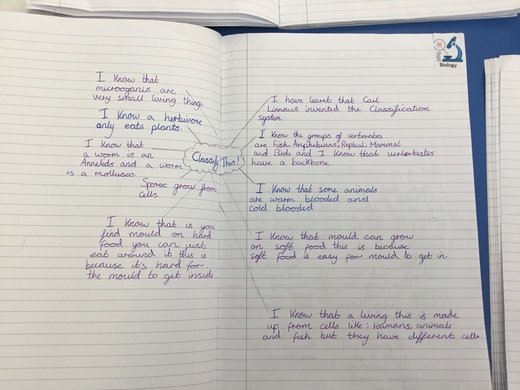 I Know that
microorganis are
very small living things
I Know a herbivore
only eats plants.
I Know that
a worm is an
Annelids and a worm
is a mollusc.
Spores grow from
cells.
I Know that is you
find mould on hard
food you can just
eat around it this is
because it's hard for
the mould to get inside
Classify This!
Biology
I have learnt that Carl
Linnaus invented the Classification
System.
I Know the groups of vertebrates
are Fish, Amphibians, Reptial, Mammal
and Birds and I Know that vertebrates
have a backbone
I Know that some animals
are warm blooded and
cold blooded
I Know that mould can grow
on soft food this is because
soft food is easy for mould to get in.
I Know that a living this is made
up from cells like: humans, animals
and fish but they have different cells